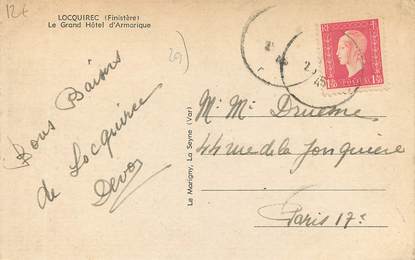 12€
LOCQUIREC (Finistère)
Le Grand Hôtel d'Armorique
29
Bons Baisers
de Locquirec
Devos
Le Marigny, La Seyne (Var)
M. Mme
44 rue de la Jonquière
Paris 17e
1F50
1F50